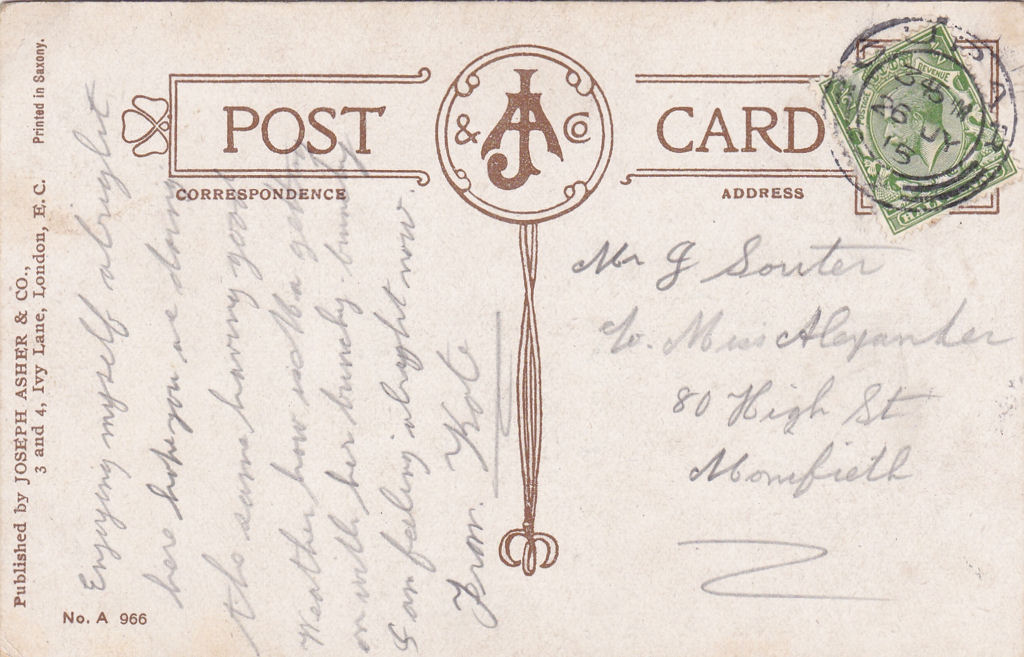 POST & AJ Co CARD
CORRESPONDENCE
ADDRESS
Published by JOSEPH ASHER & CO.,
3 and 4, Ivy Lane, London, E. C. Printed in Saxony.
No. A 966
Enjoying myself alright
here hope you are doing
the same having good
Weather how is Ma getting
on with her bunchy bunchy
I am feeling alright now.
From. Kate
Mr G Souter
c/o. Miss Alexander
80 High St
Monifieth
REVENUE
HAL
45 M
26 JY
15